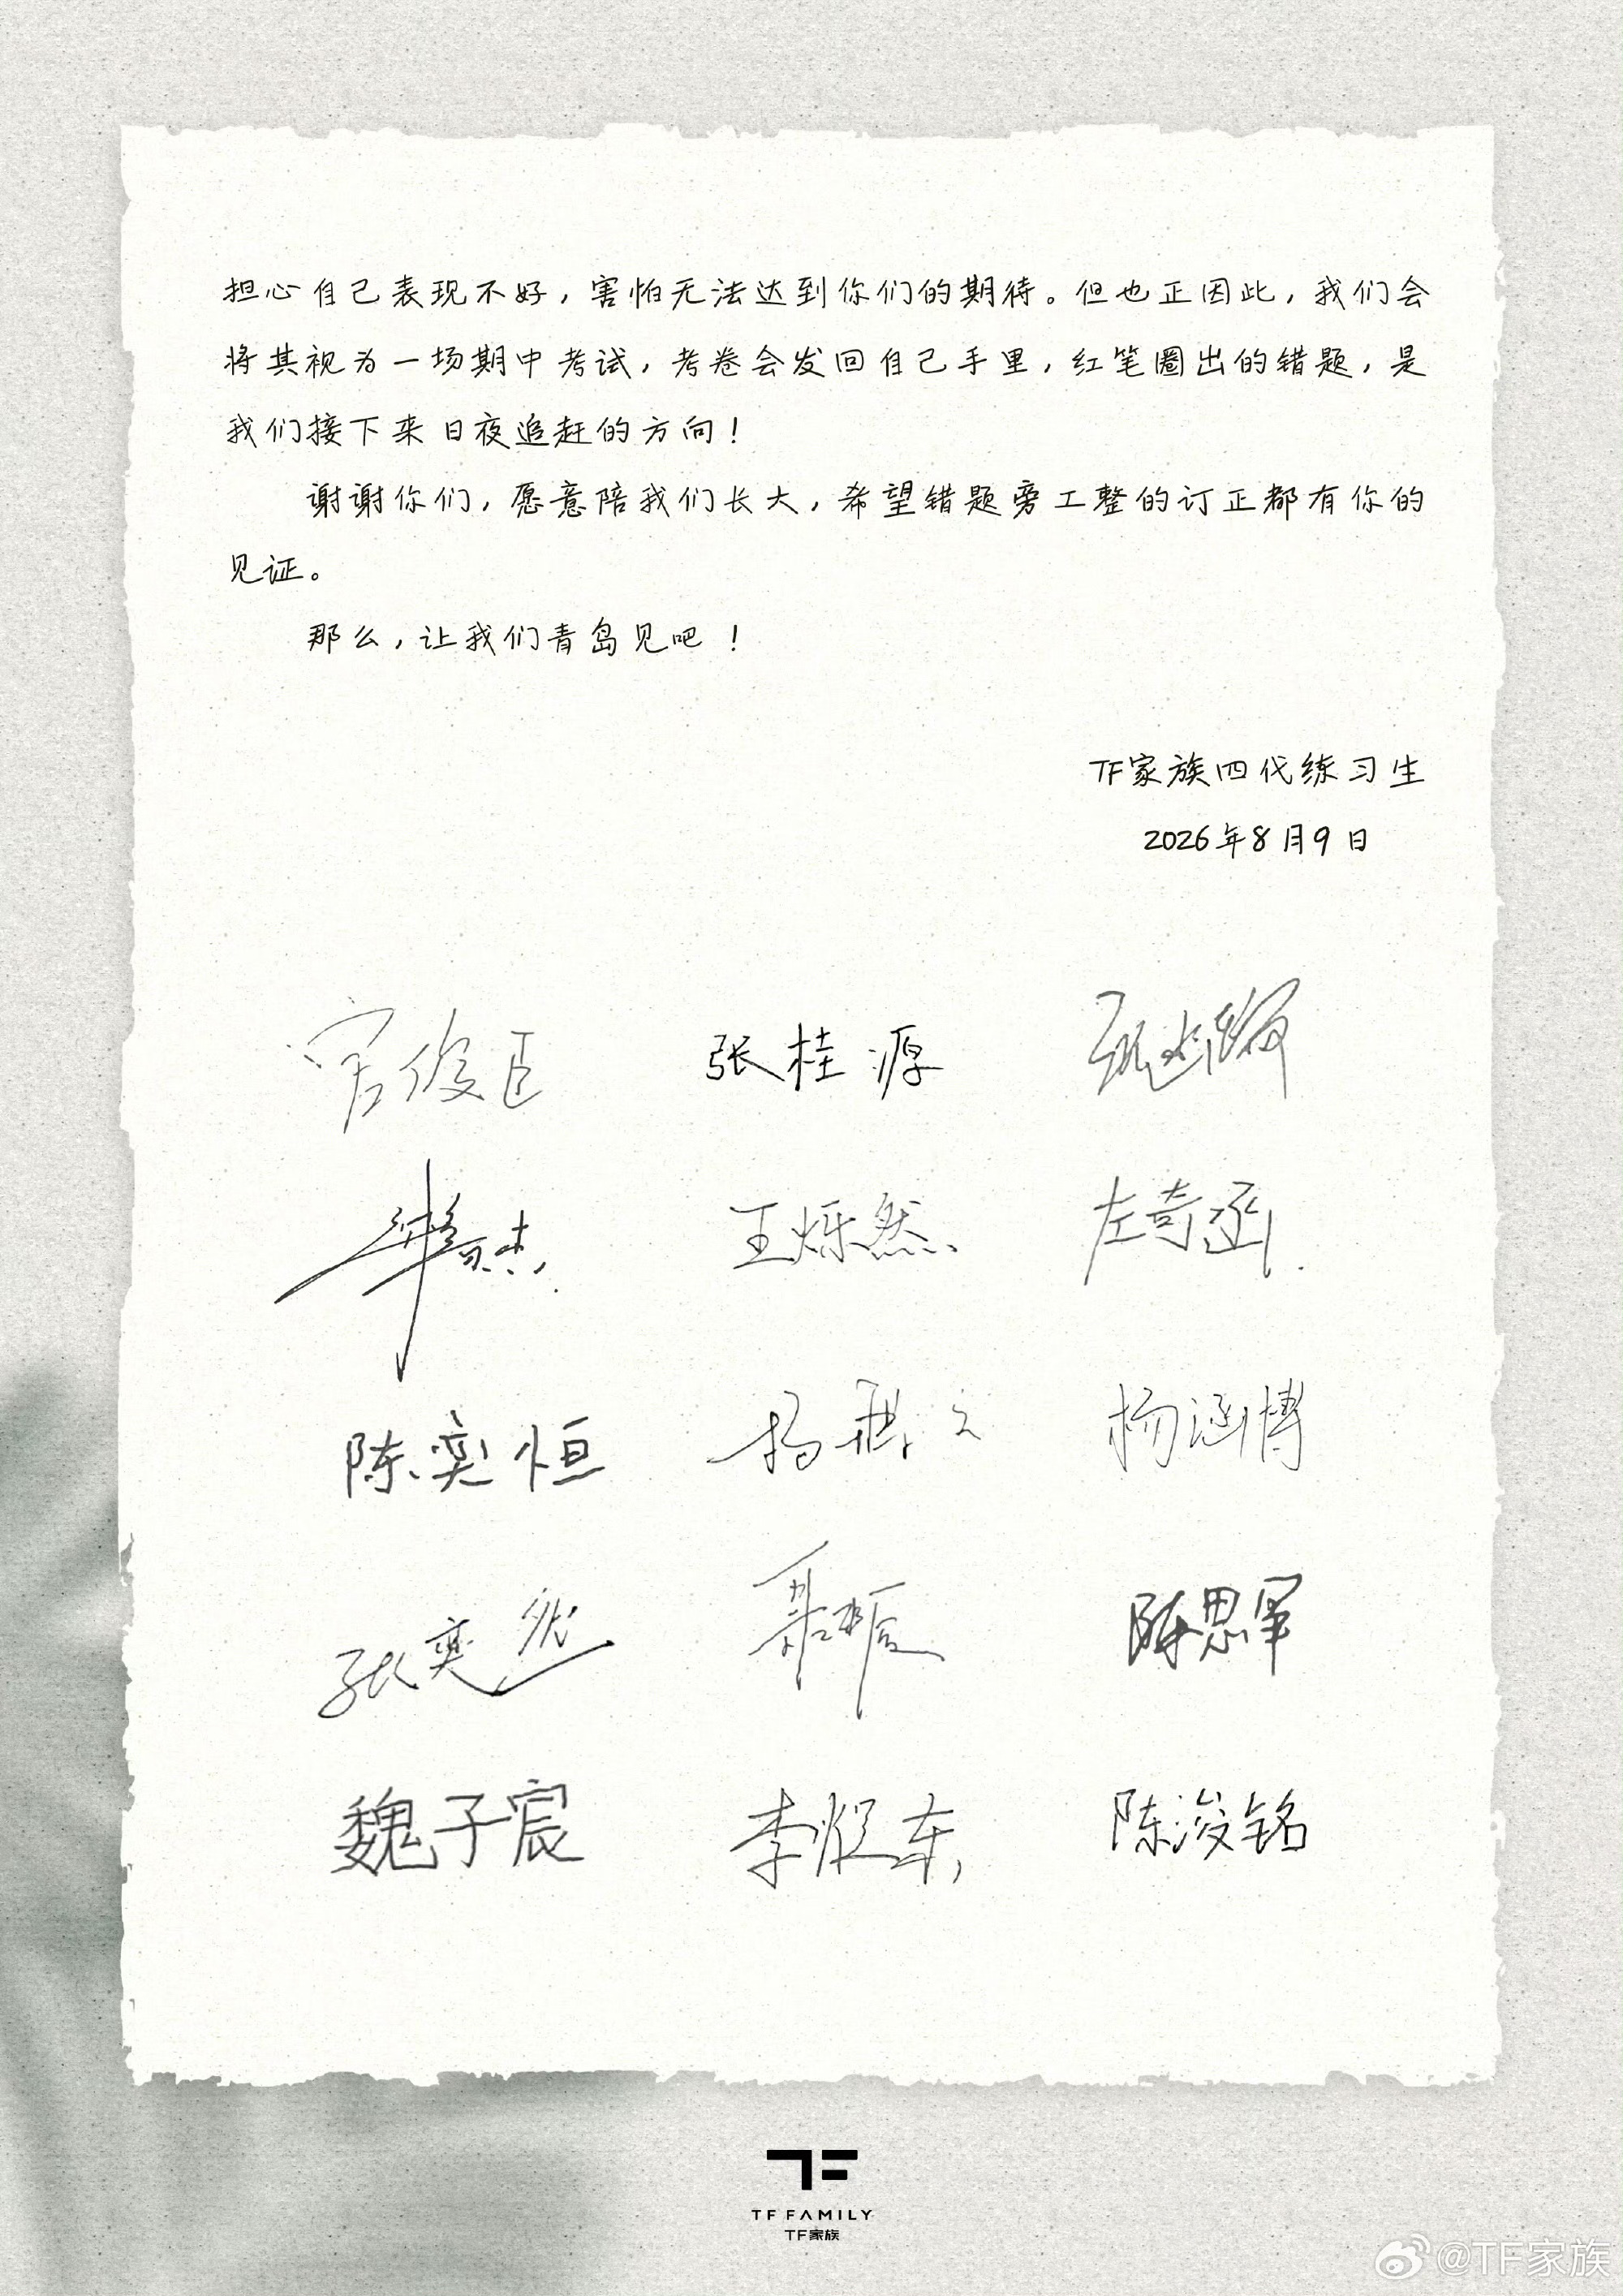 担心自己表现不好，害怕无法达到你们的期待。但也正因此，我们会
将其视为一场期中考试，考卷会发回自己手里，红笔圈出的错题，是
我们接下来日夜追赶的方向！
谢谢你们，愿意陪我们长大，希望错题旁工整的订正都有你的
见证。
那么，让我们青岛见吧！
TF家族四代练习生
2026年8月9日
官俊臣 张桂源
王烁然 左奇函
陈奕恒 杨涵博
张奕然 陈思罕
魏子宸 李煜东 陈浚铭
TF FAMILY
TF家族
@TF家族